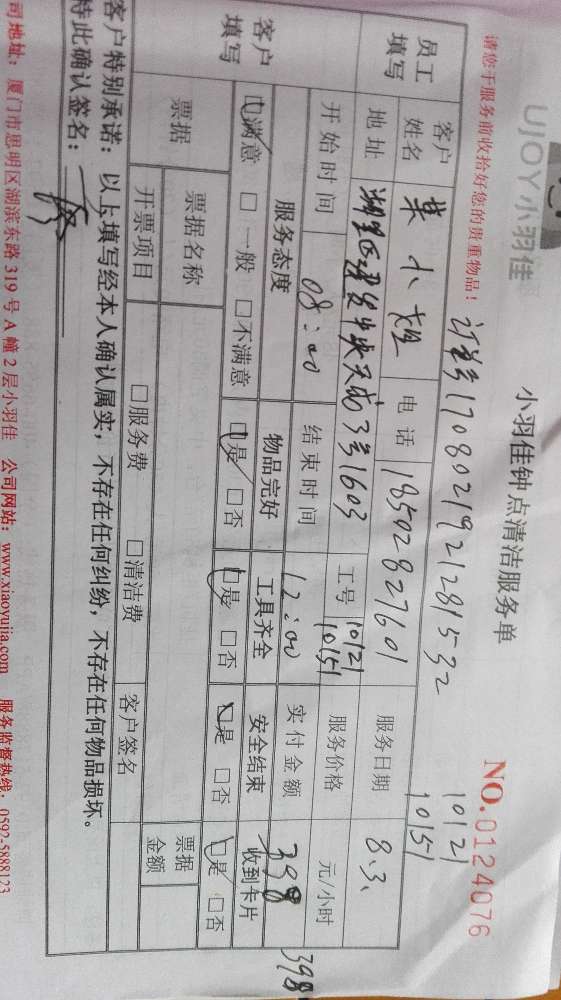 UJOY小羽佳
小羽佳钟点清洁服务单
NO.0124076
请您于服务前收拾好您的贵重物品！
订单号17080219212815 32
10121
10151
员工填写
客户姓名
小姐
电话
18502827601
服务日期
8.3.
地址
湖里区建发中央天成3号1603
工号
10121
10151
服务价格
元/小时
开始时间
08:00
结束时间
12:00
实付金额
398
398
客户填写
服务态度
物品完好
工具齐全
安全结束
收到卡片
□满意 □一般 □不满意
□是 □否
□是 □否
□是 □否
□是 □否
票据
票据名称
票据金额
开票项目
□服务费 □清洁费
客户签名
客户特别承诺：以上填写经本人确认属实，不存在任何纠纷，不存在任何物品损坏。
特此确认签名：
司地址：厦门市思明区湖滨东路319号A幢2层小羽佳 公司网站：www.xiaoyujia.com 服务监督热线：0592-5888123